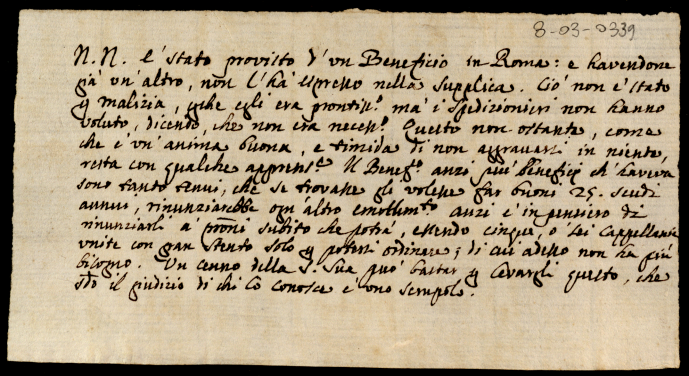 8-03-0339
N.N. è stato provisto d'un Beneficio in Roma: e havendone
già un'altro, non l'hà espresso nella supplica. Ciò non è stato
p malizia, pche egli era prontiss.º mà i spedizionieri non hanno
voluto, dicendo, che non era necess.º Questo non ostante, come
che è un'anima buona, e timida di non aggravarsi in niente,
resta con qualche apprens.e Il Benef.º anzi più benefizi ch'haveva
sono tanto tenui, che se trovasse chi volesse far buoni 25. scudi
annui, rinunziarebbe ogn'altro emolum.to anzi è in pensiero di
rinunziarli a pnŕi subito che potrà, essendo cinque, o sei Cappellanie
unite con gran stento solo p potersi ordinare; di cui adesso non ha più
bisogno. Un cenno della S. Sua può bastar p levargli questo, che
sdo il giudizio di chi lo conosce è uno scrupolo.